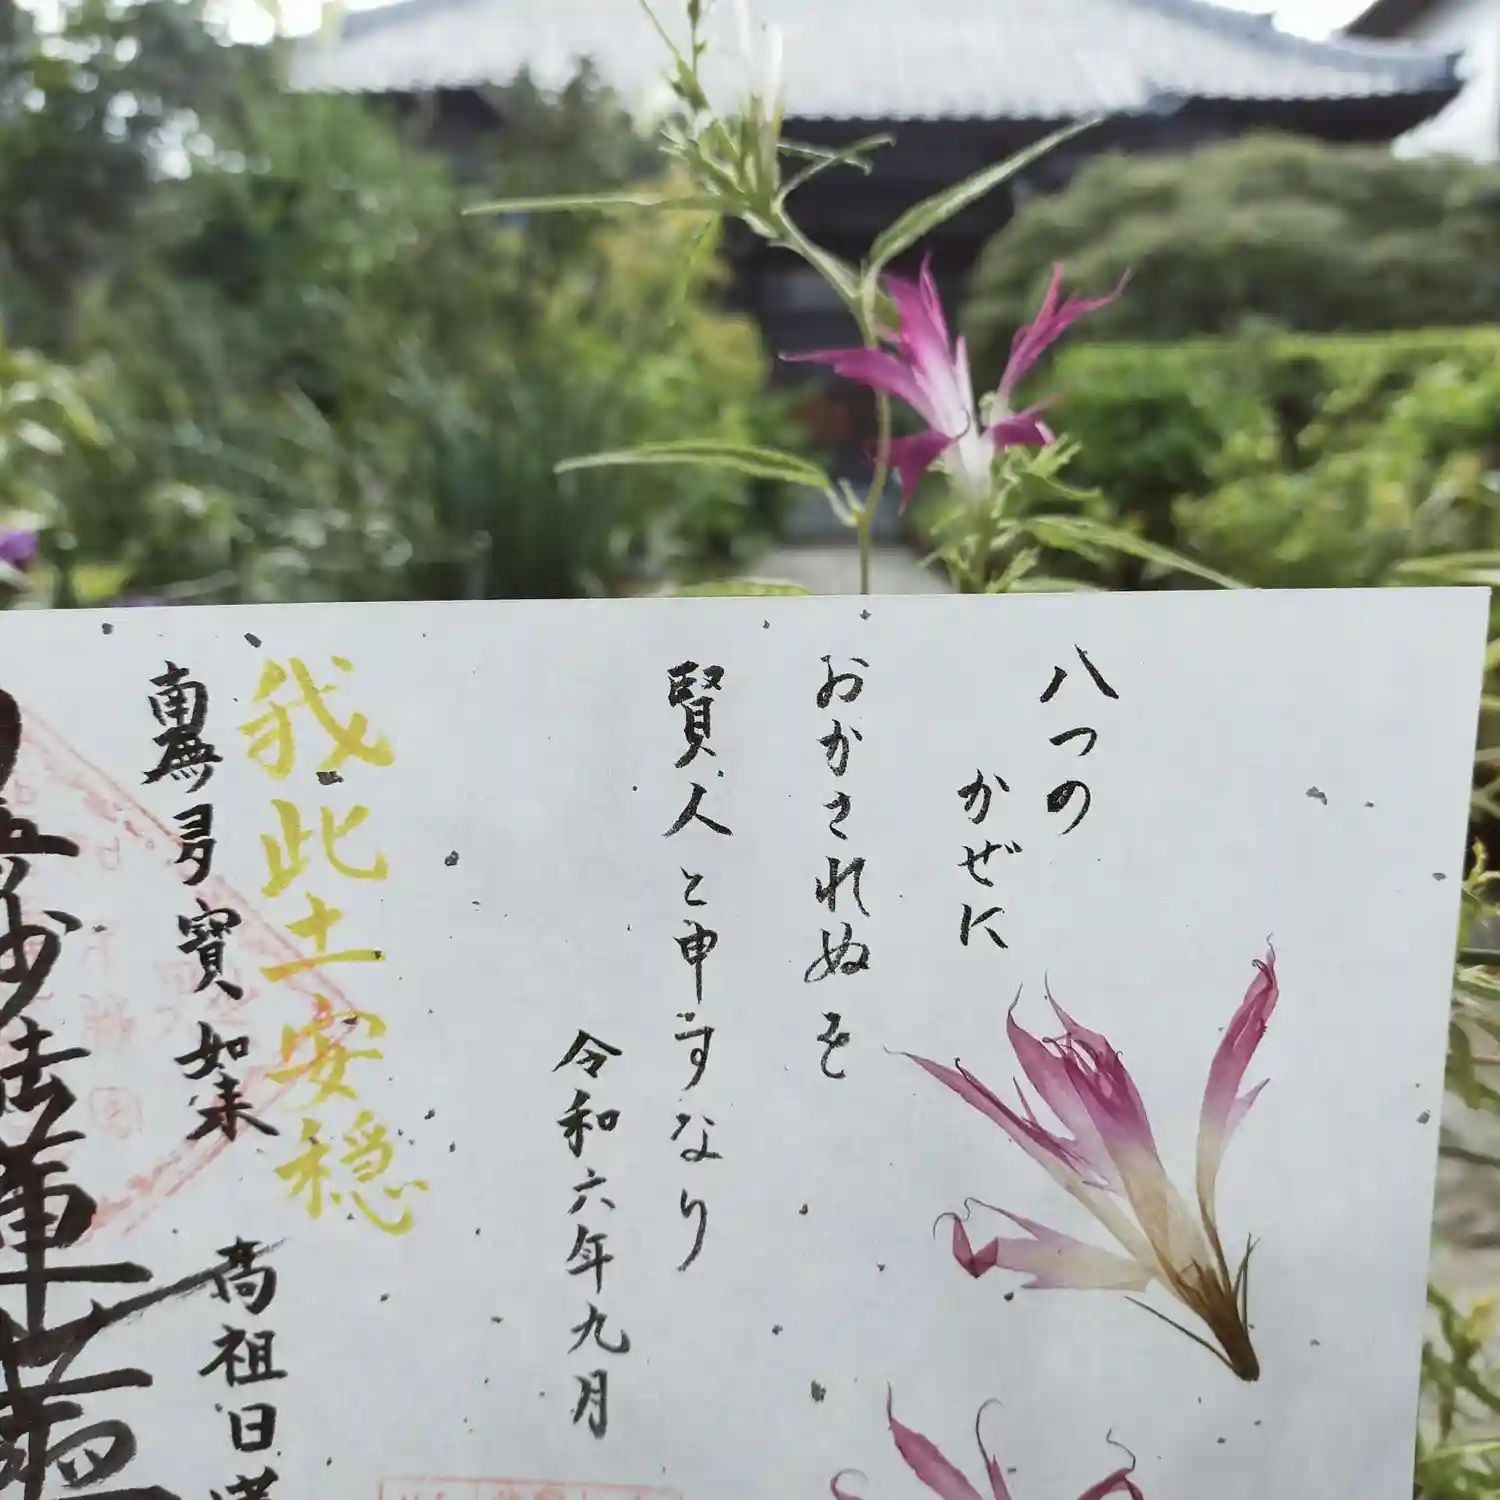 八つの
かぜに
おかされぬを
賢人と申すなり
令和六年九月
我此土安穏
南無多寶如来
高祖日蓮
妙法蓮華